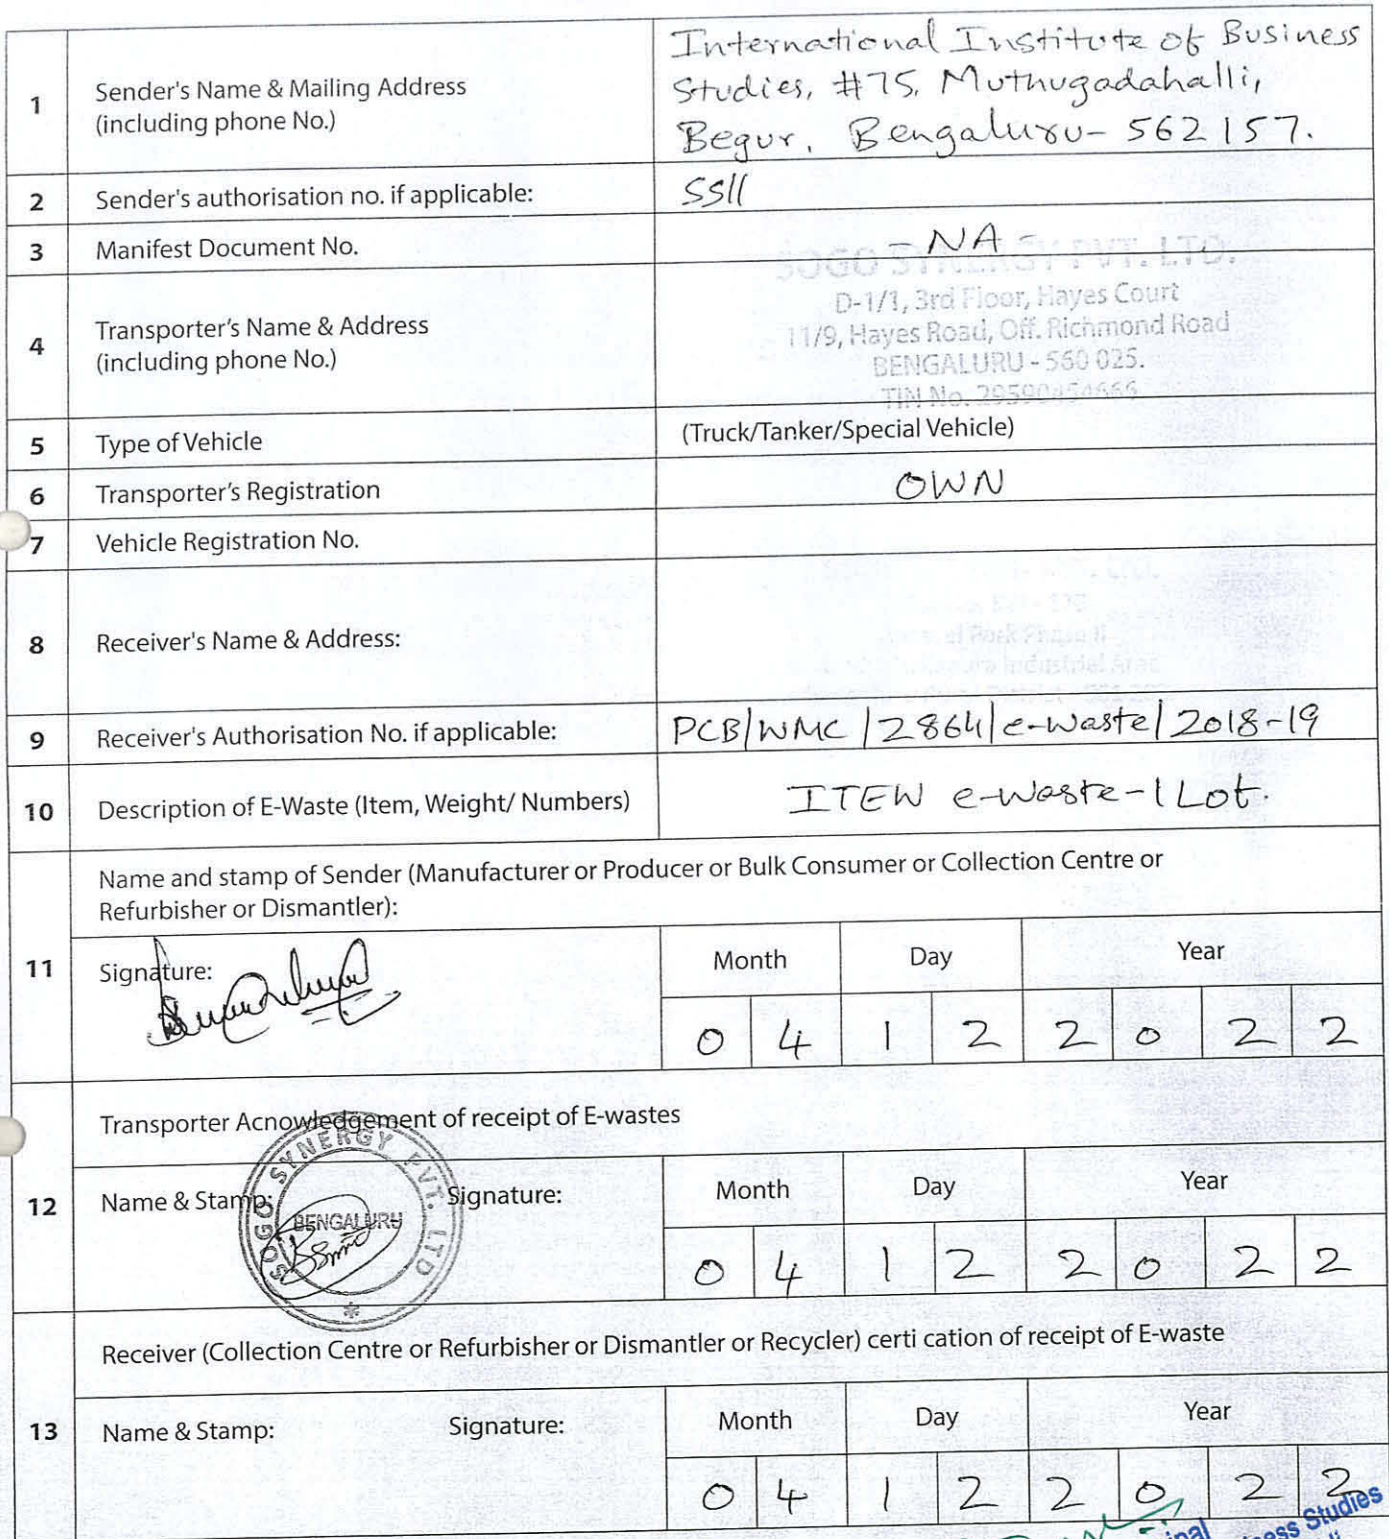 1
Sender's Name & Mailing Address
(including phone No.)
International Institute of Business
Studies, #75, Muthugadahalli,
Begur, Bengaluru- 562157.
2
Sender's authorisation no. if applicable:
SSII
3
Manifest Document No.
- NA -
4
Transporter's Name & Address
(including phone No.)
SOGO SYNERGY PVT. LTD.
D-1/1, 3rd Floor, Hayes Court
11/9, Hayes Road, Off. Richmond Road
BENGALURU - 560 025.
TIN No.
5
Type of Vehicle
(Truck/Tanker/Special Vehicle)
6
Transporter's Registration
OWN
7
Vehicle Registration No.
8
Receiver's Name & Address:
Industrial Area
9
Receiver's Authorisation No. if applicable:
PCB/WMC/2864/e-waste/2018-19
10
Description of E-Waste (Item, Weight/ Numbers)
ITEW e-waste-1 Lot.
11
Name and stamp of Sender (Manufacturer or Producer or Bulk Consumer or Collection Centre or
Refurbisher or Dismantler):
Signature:
Month Day Year
0 4 1 2 2 0 2 2
12
Transporter Acnowledgement of receipt of E-wastes
Name & Stamp: Signature:
SOGO SYNERGY PVT. LTD
BENGALURU
Month Day Year
0 4 1 2 2 0 2 2
13
Receiver (Collection Centre or Refurbisher or Dismantler or Recycler) certi cation of receipt of E-waste
Name & Stamp: Signature:
Month Day Year
0 4 1 2 2 0 2 2
Studies